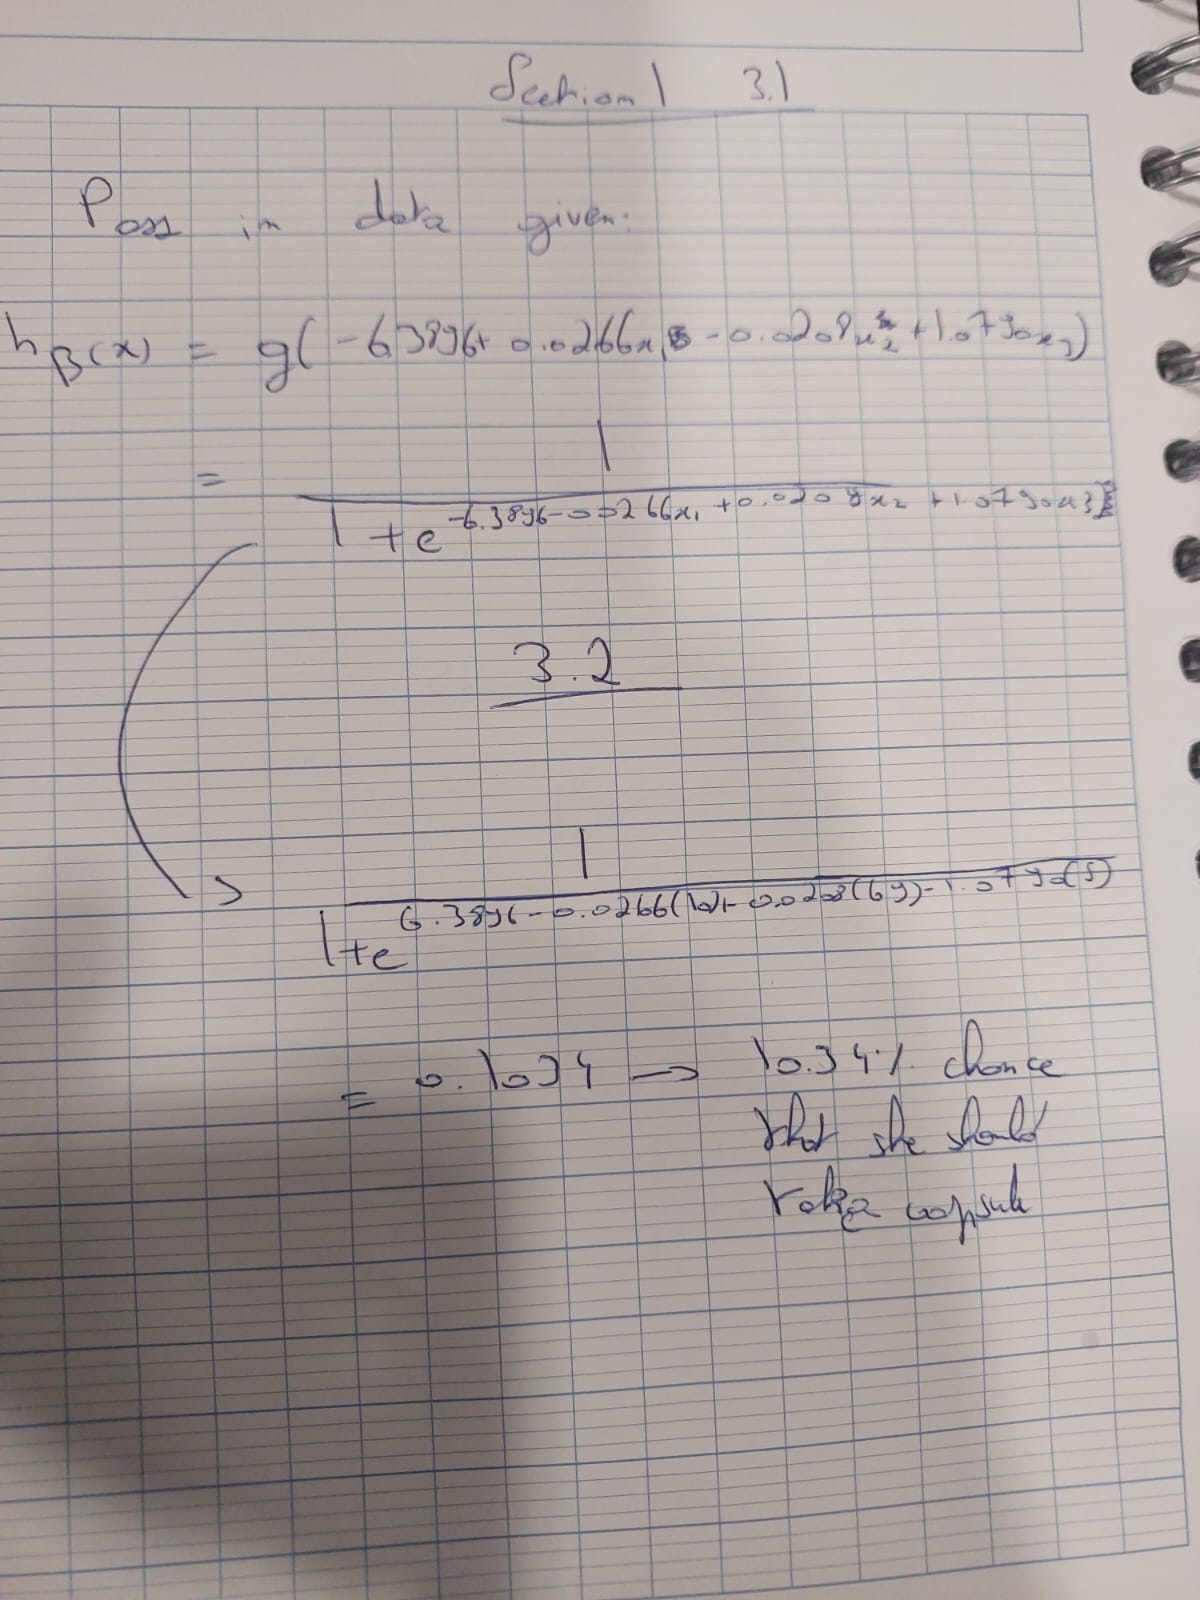 Section 1 3.1
Pass in data given:
hβ(x) = g(-6.3896+ 0.0266x₁ - 0.0208x₂ + 1.0790x₃)
= 1
1 + e^-6.3896-0.0266x₁ + 0.0208x₂ + 1.0790x₃
3.2
1
1+e^6.3896-0.0266(10)+ 0.0208(69)-1.0790(5)
= 0.1034 → 10.34% chance
that she should
take capsule